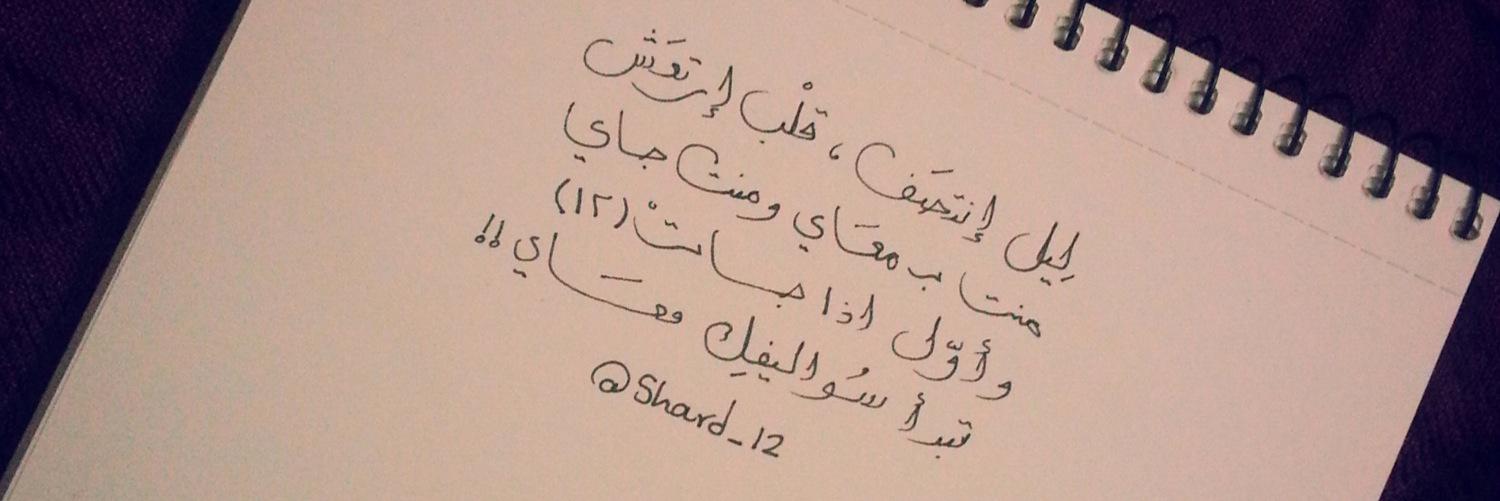 لِيل إنتصَف ، قلْب إرتعَش
منتا ب معَاي ومنت جاي
وأوّل اذا جاتْ (١٢)
تبدأ سُواليفِك معَاي !!
@Shard_12